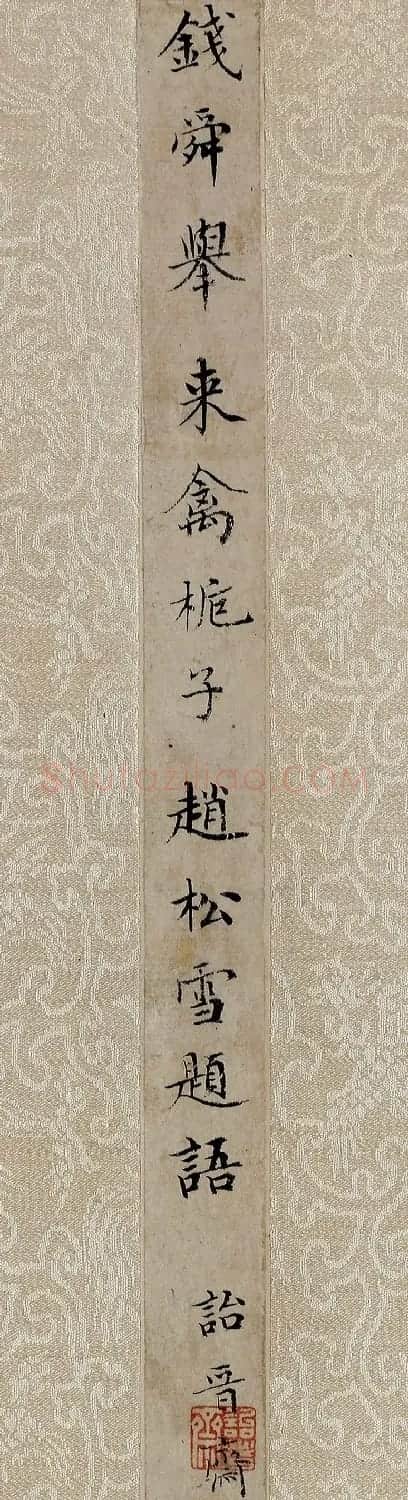 錢舜舉来禽梔子 趙松雪題語 詒晉齋
shufaziliao.COM